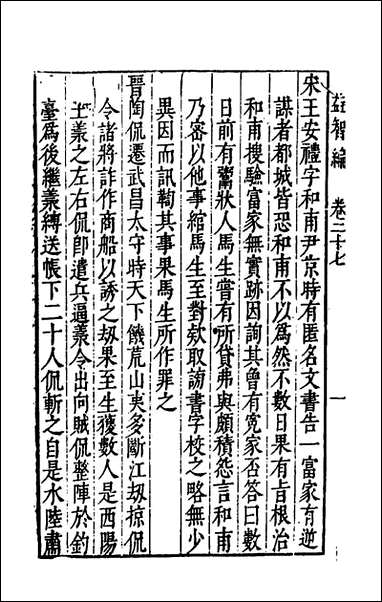 宋王安禮字和甫尹京時有匿名文書告一富家有逆
謀者都城皆恐和甫不以爲然不數日果有旨根治
和甫搜驗富家無實跡因詢其曾有寃家否答曰數
日前有鬻狀人馬生嘗有所貸弗與頗積怨言和甫
乃密以他事綰馬生至對款取謗書字校之略無少
異因而訊鞫其事果馬生所作罪之
晉陶侃遷武昌太守時天下饑荒山夷多斷江刼掠侃
令諸將詐作商船以誘之刼果至生獲數人是西陽
王羕之左右侃卽遣兵逼羕令出向賊侃整陣於釣
臺爲後繼羕縛送帳下二十人侃斬之自是水陸肅
益智編 卷三十七 一